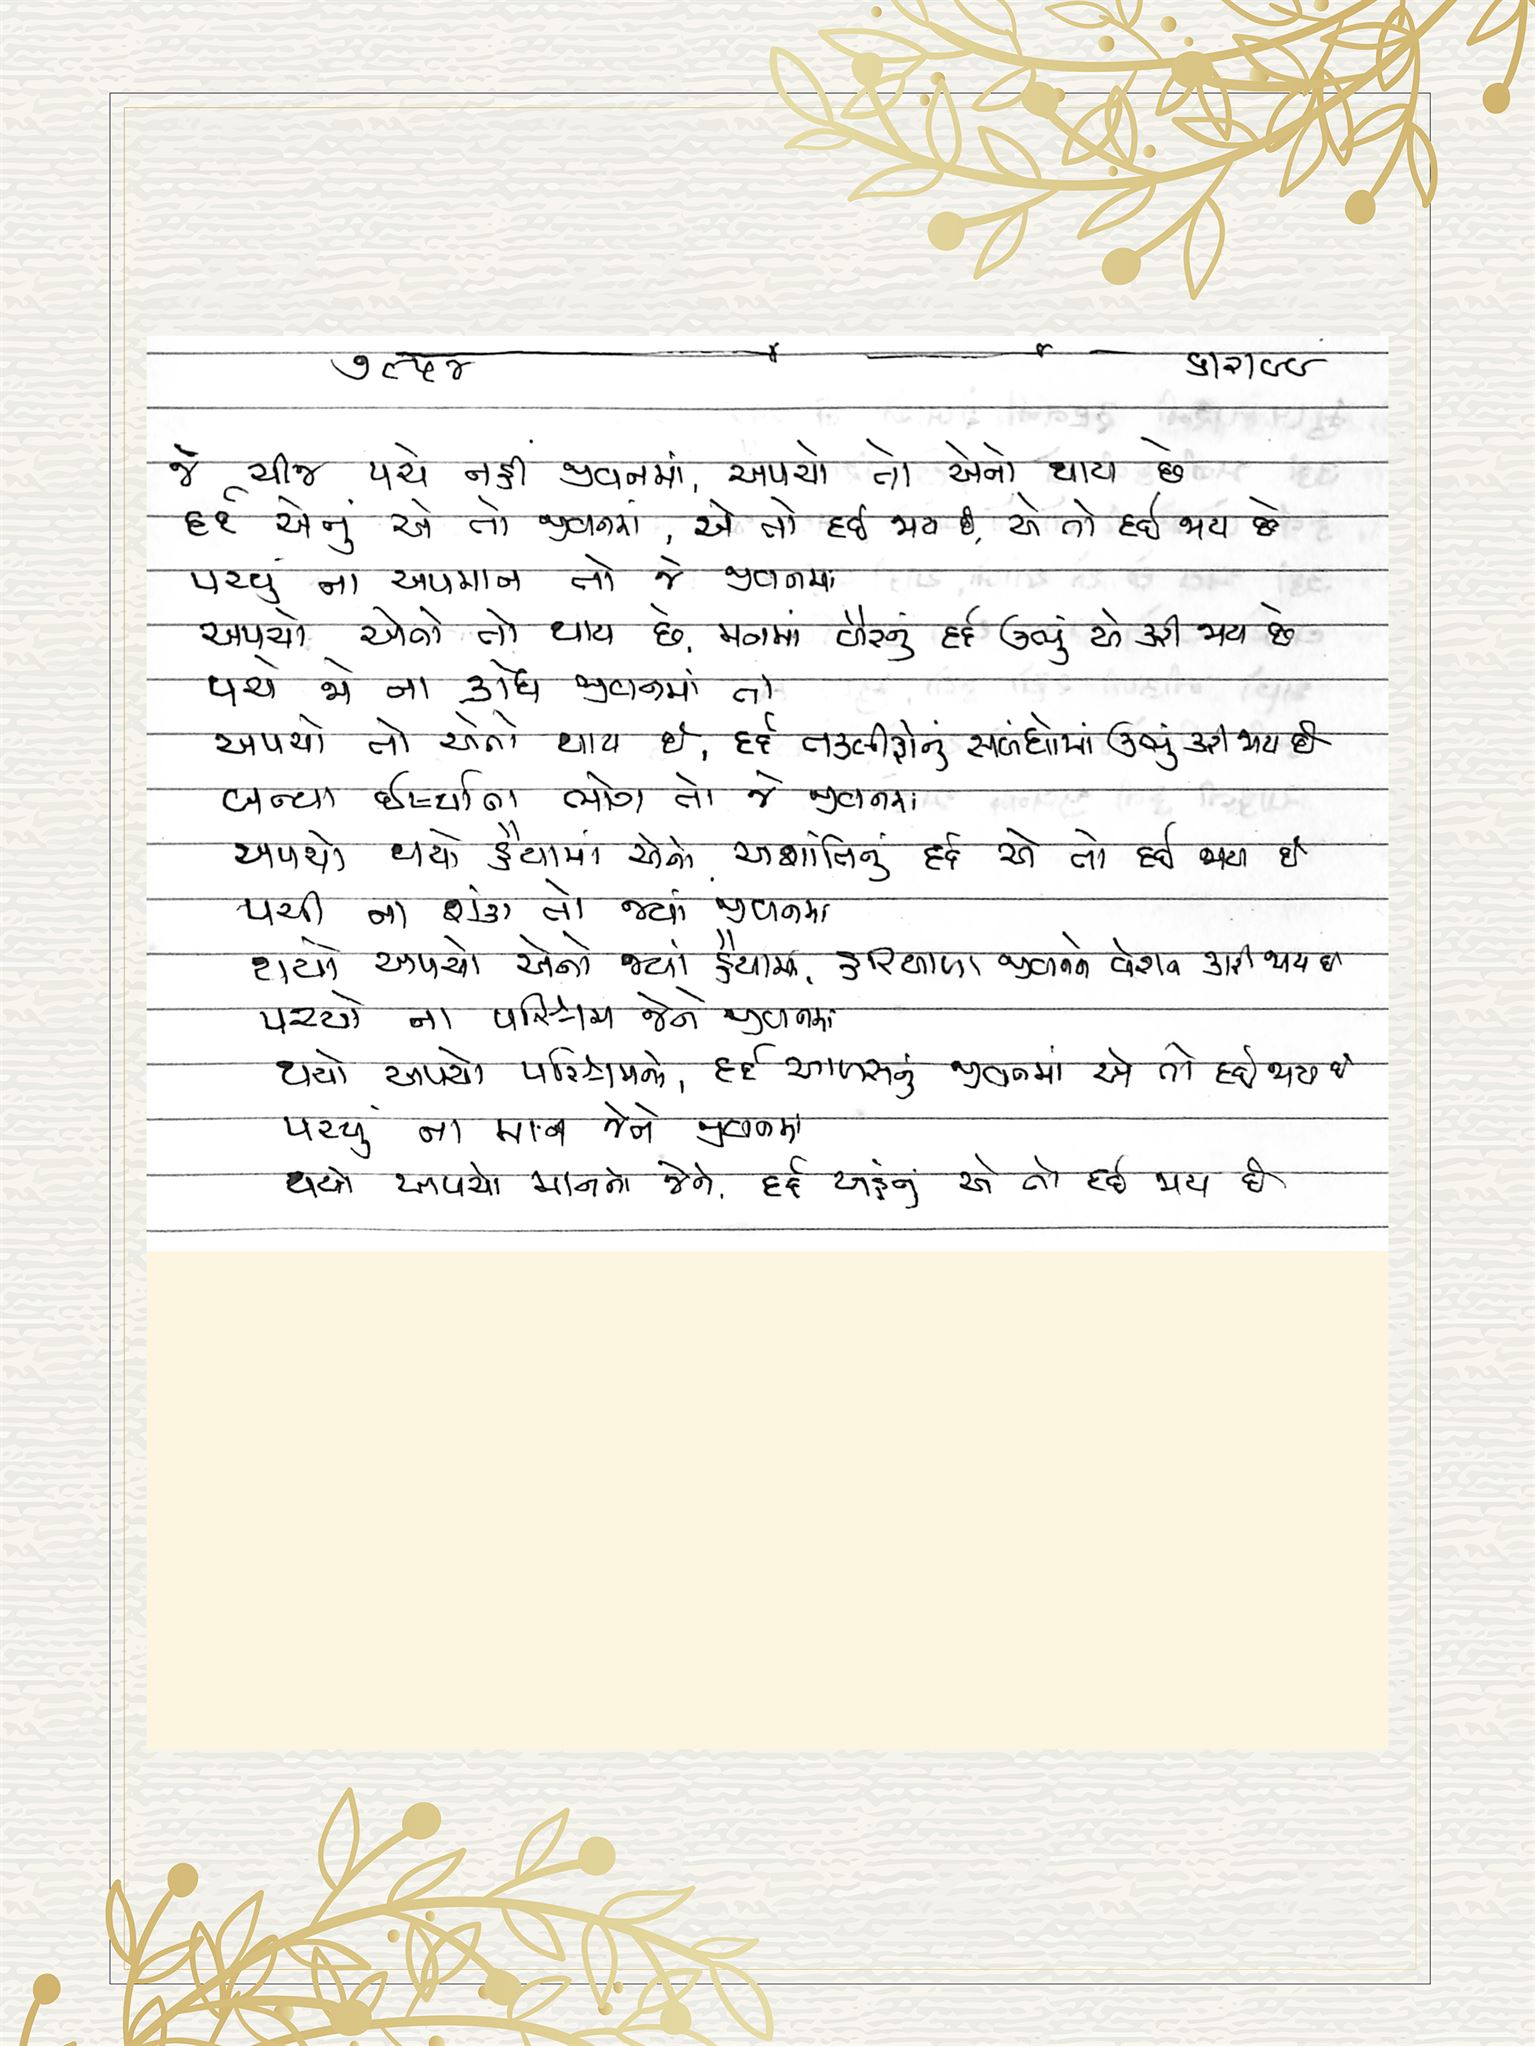 ૭૮૫૪
જે ચીજ પચે નહીં જીવનમાં, અપચો તો એનો થાય છે
દર્દ એનું એ તો જીવનમાં, એ તો દઈ જાય છે, એ તો દઈ જાય છે
પચ્યું ના અપમાન તો જે જીવનમાં
અપચો એનો તો થાય છે, મનમાં વૈરનું દર્દ ઉભું એ કરી જાય છે
પચે જો ના ક્રોધ જીવનમાં તો
અપચો તો એનો થાય છે, દર્દ તકલીફોનું સબંધોમાં ઉભું કરી જાય છે
બન્યા ઈર્ષ્યાના ભોગ તો જે જીવનમાં
અપચો થયો હૈયામાં એનો, અશાંતિનું દર્દ એ તો દઈ જાય છે
પચી ના શંકા તો જ્યાં જીવનમાં
થયો અપચો એનો જ્યાં હૈયામાં, હરિયાળા જીવનને વેરાન કરી જાય છે
પચ્યો ના પરિશ્રમ જેને જીવનમાં
થયો અપચો પરિશ્રમનો, દર્દ આળસનું જીવનમાં એ તો દઈ જાય છે
પચ્યું ના માન જેને જીવનમાં
થયો અપચો માનનો જેને, દર્દ અહંનું એ તો દઈ જાય છે